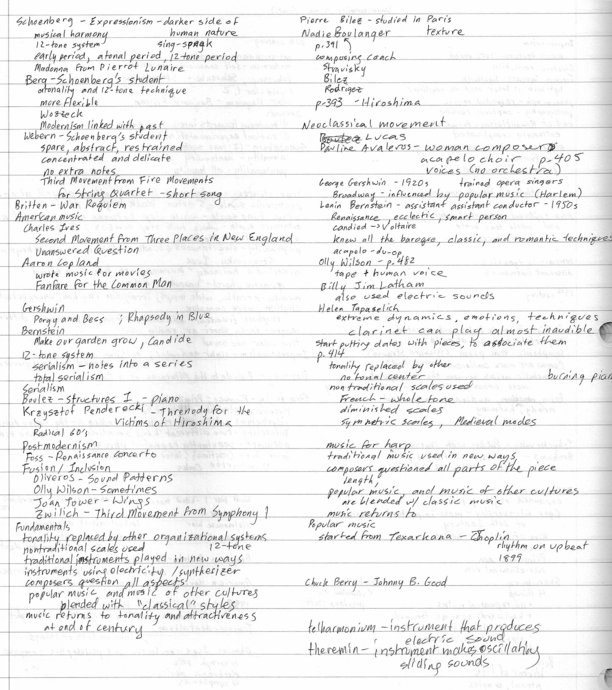 Schoenberg - Expressionism - darker side of
musical harmony human nature
12-tone system sing-speak
early period, atonal period, 12-tone period
Madonna from Pierrot Lunaire
Berg - Schoenberg's student
atonality and 12-tone technique
more flexible
Wozzeck
Modernism linked with past
Webern - Schoenberg's student
spare, abstract, restrained
concentrated and delicate
no extra notes
Third Movement from Five Movements
for String Quartet - short song
Britten - War Requiem
American music
Charles Ives
Second Movement from Three Places in New England
Unanswered Question
Aaron Copland
wrote music for movies
Fanfare for the Common Man
Gershwin
Porgy and Bess ; Rhapsody in Blue
Bernstein
Make our garden grow, Candide
12-tone system
serialism - notes into a series
total serialism
Serialism
Boulez - structures I - piano
Krzysztof Penderecki - Threnody for the
Victims of Hiroshima
Radical 60's
Postmodernism
Foss - Renaissance Concerto
Fusion / Inclusion
Oliveros - Sound Patterns
Olly Wilson - Sometimes
Joan Tower - Wings
Zwilich - Third Movement from Symphony 1
Fundamentals
tonality replaced by other organizational systems
nontraditional scales used 12-tone
traditional instruments played in new ways
instruments using electricity / synthesizer
composers question all aspects
popular music and music of other cultures
blended with "classical" styles
music returns to tonality and attractiveness
at end of century
Pierre Bilez - studied in Paris
Nadie Boulanger texture
p.391
composing coach
Stravisky
Bilez
Rodrigez
p.393 - Hiroshima
Neoclassical movement
Lucas
Pauline Avaleros - woman composer
acapelo choir p.405
voices (no orchestra)
George Gershwin - 1920s trained opera singers
Broadway - influenced by popular music (Harlem)
Lenin Bernstein - assistant assistant conductor - 1950s
Renaissance, ecclectic, smart person
candied -> Voltaire
Knew all the baroque, classic, and romantic techniques
acapelo - du-op
Olly Wilson - p.482
tape + human voice
Billy Jim Latham
also used electric sounds
Helen Tapaselich
extreme dynamics, emotions, techniques
clarinet can play almost inaudible
start putting dates with pieces, to associate them
p.414
tonality replaced by other
no tonal center burning pian
nontraditional scales used
French - whole tone
diminished scales
symmetric scales, Medieval modes
music for harp
traditional music used in new ways
composers questioned all parts of the piece
length,
popular music, and music of other cultures
are blended w/ classic music
music returns to
Popular music
started from Texarkana - Joplin
rhythm on upbeat
1899
Chuck Berry - Johnny B. Good
telharmonium - instrument that produces
electric sound
theremin - instrument makes oscillating
sliding sounds